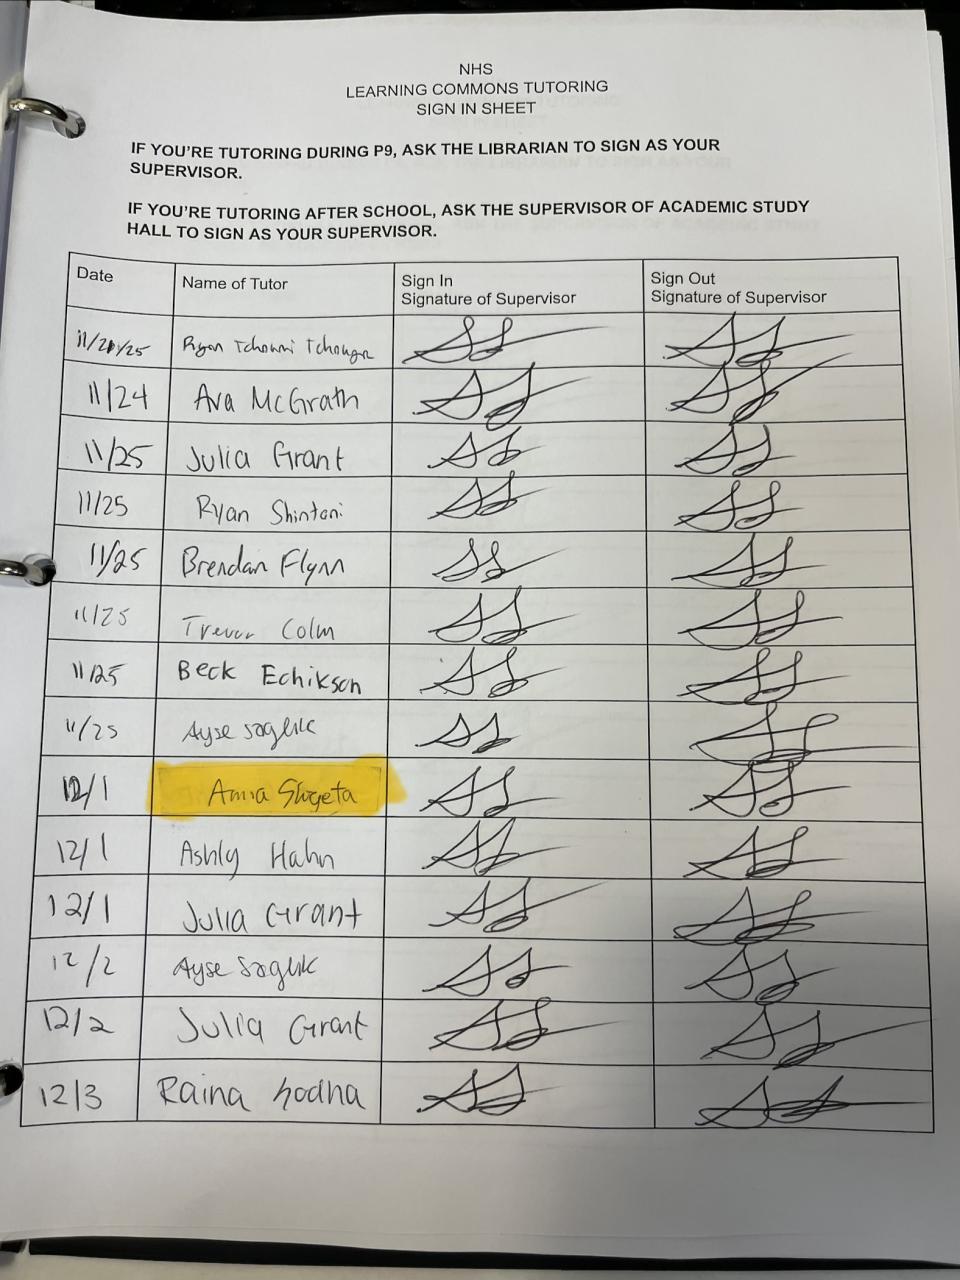 NHS
LEARNING COMMONS TUTORING
SIGN IN SHEET
IF YOU'RE TUTORING DURING P9, ASK THE LIBRARIAN TO SIGN AS YOUR
SUPERVISOR.
IF YOU'RE TUTORING AFTER SCHOOL, ASK THE SUPERVISOR OF ACADEMIC STUDY
HALL TO SIGN AS YOUR SUPERVISOR.
Date Name of Tutor Sign In Sign Out
Signature of Supervisor Signature of Supervisor
Ryan
11/24 Ava McGrath
11/25 Julia Grant
11/25 Ryan Shintani
11/25 Brendan Flynn
11/25 Trevor Colm
11/25 Beck Echikson
11/25 Ayse Saglik
12/1
12/1 Ashly Hahn
12/1 Julia Grant
12/2 Ayse Saglik
12/2 Julia Grant
12/3 Raina